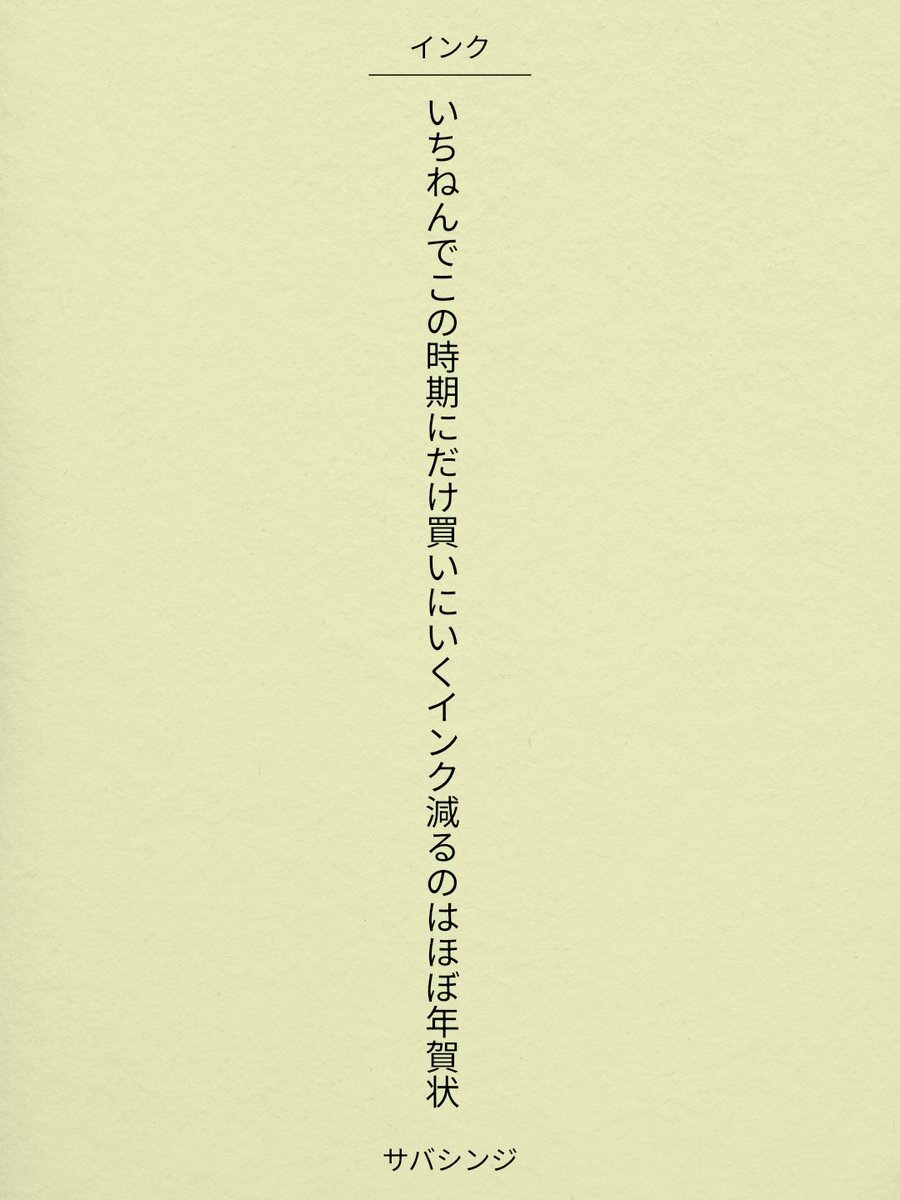 インク
いちねんでこの時期にだけ買いにいくインク減るのはほぼ年賀状
サバシンジ